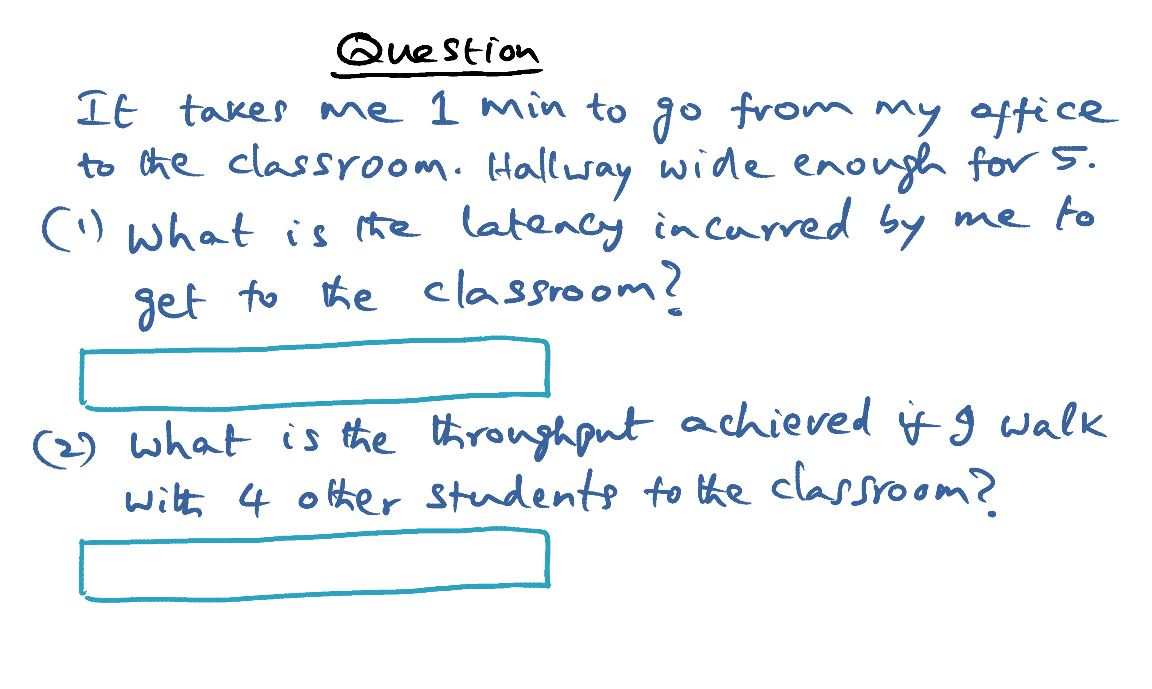 Question
It takes me 1 min to go from my office
to the classroom. Hallway wide enough for 5.
(1) What is the latency incurred by me to
get to the classroom?
(2) What is the throughput achieved if I walk
with 4 other students to the classroom?